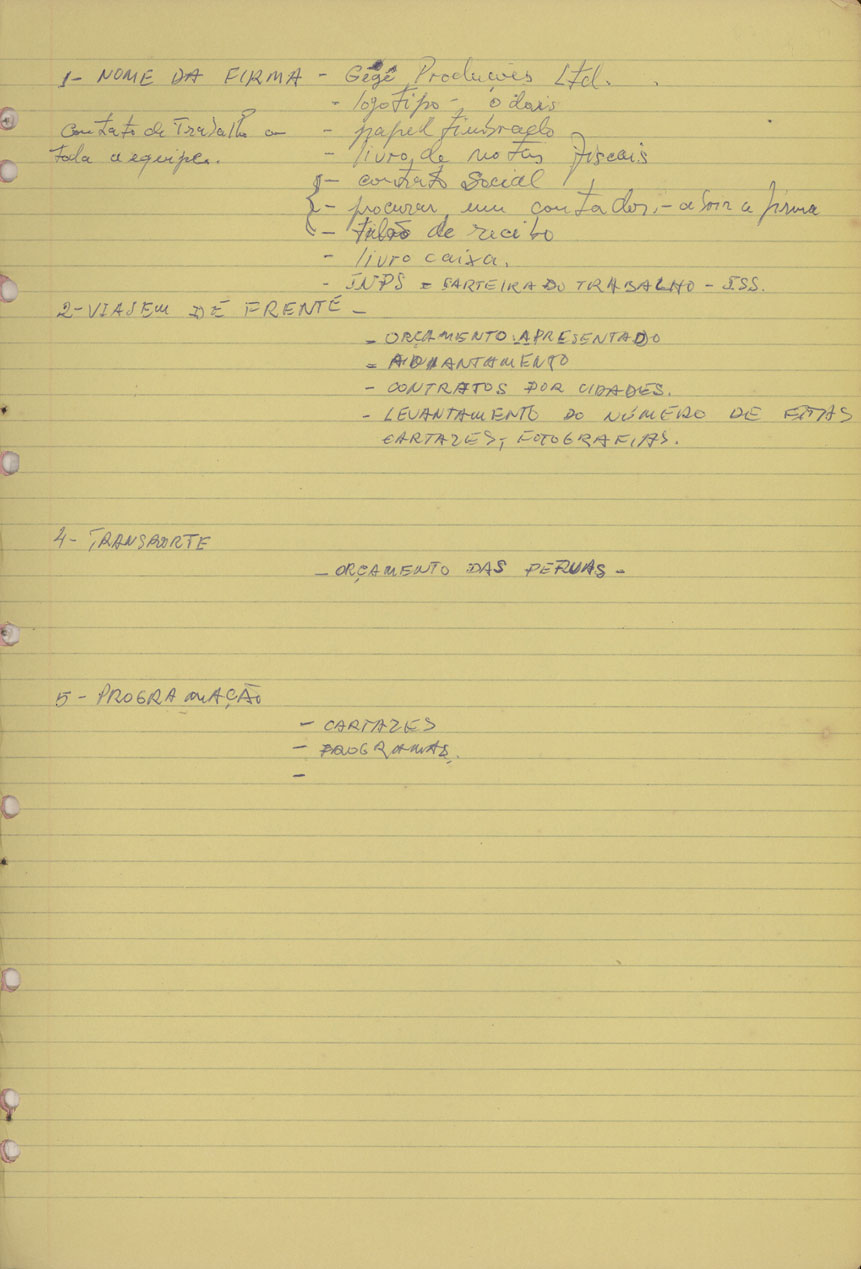 1- NOME DA FIRMA - Gêgê Produções Ltd.
- logotipo - o dois
contato de Trabalho a - papel timbrado
toda a equipe. - livro, de notas fiscais
- contrato Social
- procurar um contador, - abrir a firma
- talão de recibo
- livro caixa.
- INPS = CARTEIRA DO TRABALHO - ISS.
2- VIAJEM DE FRENTE -
- ORÇAMENTO APRESENTADO
- ADIANTAMENTO
- CONTRATOS POR CIDADES.
- LEVANTAMENTO DO NÚMERO DE FITAS
CARTAZES, FOTOGRAFIAS.
4- TRANSPORTE
- ORÇAMENTO DAS PERUAS -
5- PROGRAMAÇÃO
- CARTAZES
- PROGRAMAS.
-